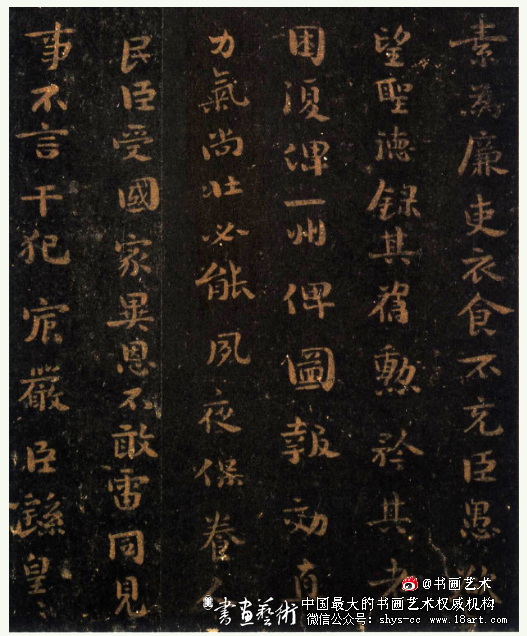 素為廉吏衣食不充臣愚欲
望聖德錄其舊勳矜其老
困復俾一州俾圖報效直
力氣尚壯必能夙夜保養人
民臣受國家異恩不敢雷同見
事不言干犯宸嚴臣繇皇
書畫藝術
@书画艺术
中国最大的书画艺术权威机构
微信公众号：shys-cc www.18art.com